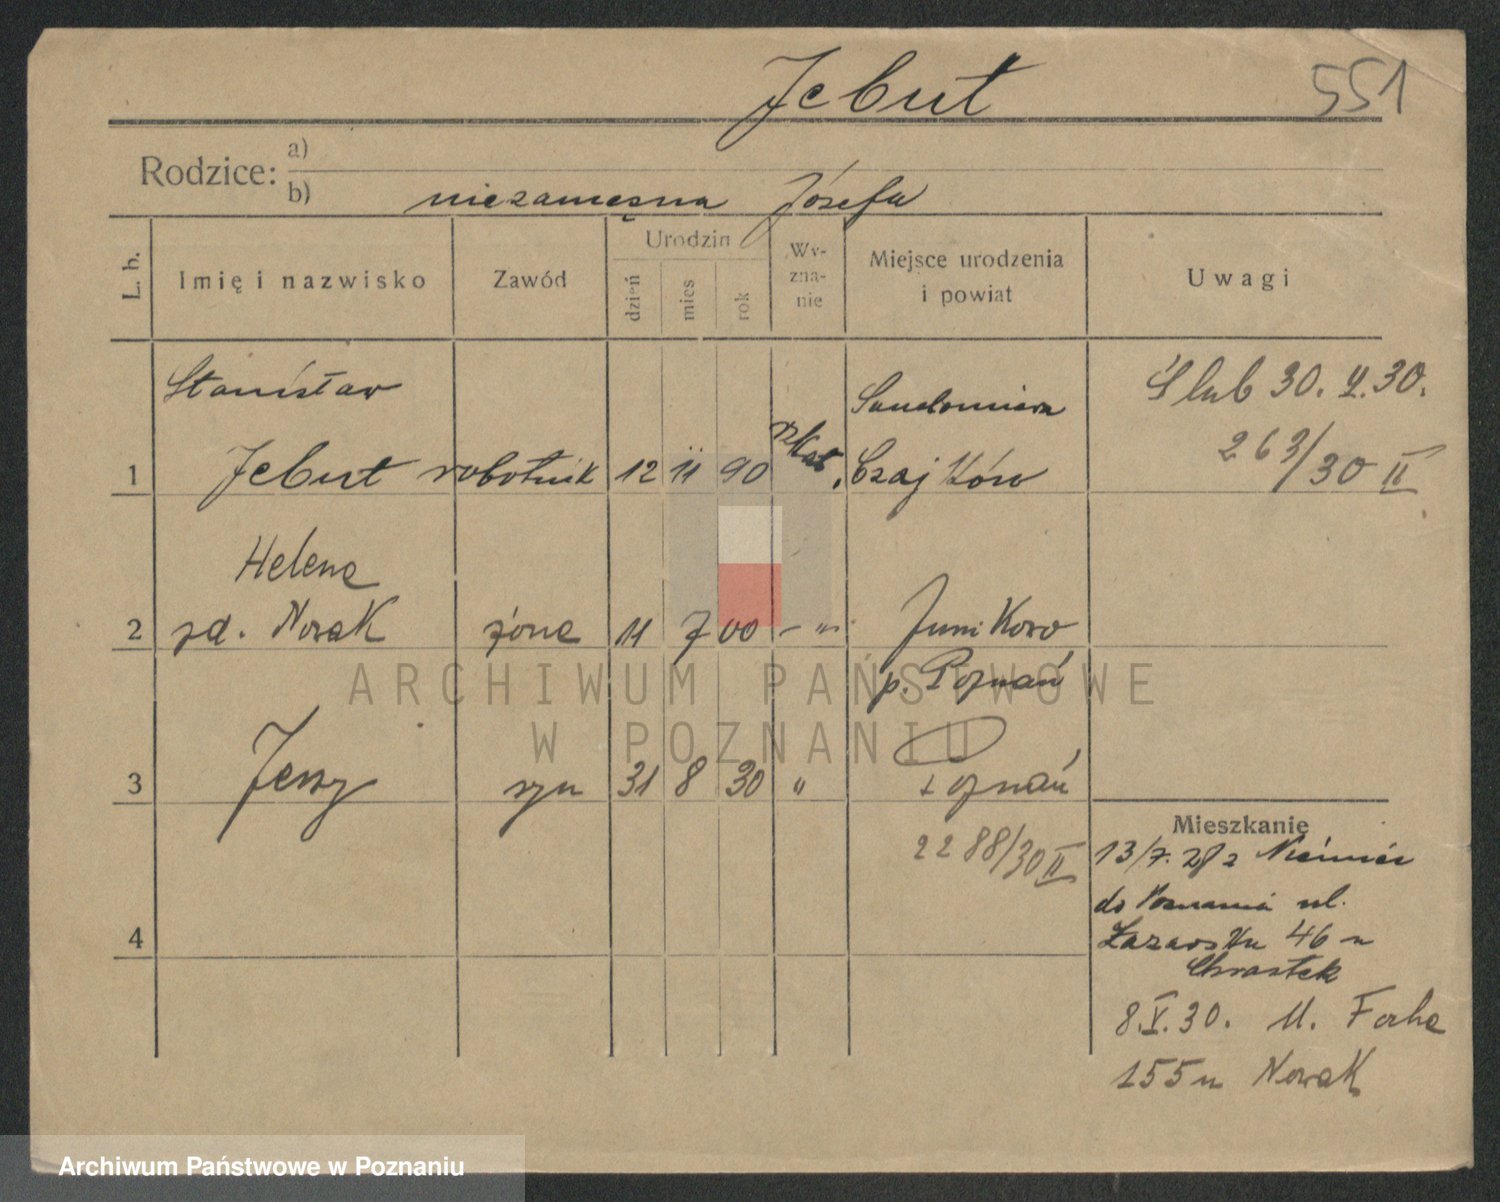 Jebut 551
Rodzice: a)
b) niezamężna Józefa
L. b. Imię i nazwisko Zawód Urodzin dzień mies rok Wyznanie Miejsce urodzenia i powiat Uwagi
Stanisław
1 Jebut robotnik 12 11 90 rz kat. Czajków
Ślub 30. V. 30.
263/30 II
Helena
2 zd. Nowak żona 11 7 00 - " - Junikowo
p. Poznań
3 Jerzy syn 31 8 30 " Poznań
2288/30 II
4
Mieszkanie
13/7. 28 z Niemiec
do Poznania ul.
Łazarska 46 u
Chrastek
8. V. 30. M. Focha
155 u Nowak
ARCHIWUM PAŃSTWOWE
W POZNANIU
Archiwum Państwowe w Poznaniu